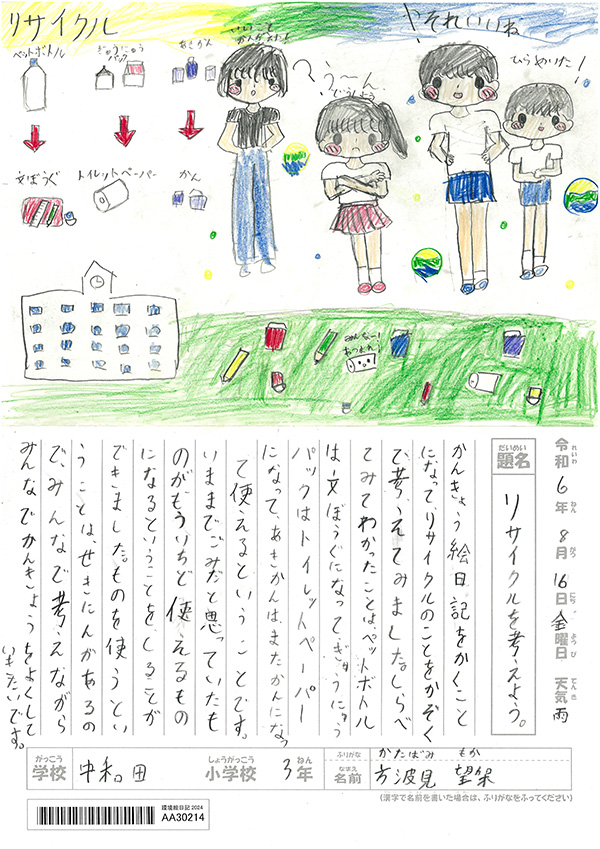 リサイクル
ペットボトル
ぎゅうにゅう
パック
あきかん
文ぼうぐ
トイレットペーパー
かん
う〜ん
どうしよう
それいいね
ひらめいた！
みんなー！
あつまれ！
令和6年8月16日金曜日 天気雨
れいわ ねん がつ にち ようび てんき
だいめい
題名
リサイクルを考えよう。
かんきょう絵日記をかくこと
になって、リサイクルのことをかぞく
で考えてみました。しらべ
てみてわかったことは、ペットボトル
は文ぼうぐになって、ぎゅうにゅう
パックはトイレットペーパー
になって、あきかんは、またかんになっ
て使えるということです。
いままでごみだと思っていたも
のがもういちど使えるもの
になるということをしることが
できました。ものを使うとい
うことは、せきにんがあるの
で、みんなで考えながら
みんなでかんきょうをよくして
いきたいです。
がっこう
学校
中和田
しょうがっこう
小学校
3
ねん
年
ふりがな
かたばみ もか
なまえ
名前
方波見
(漢字で名前を書いた場合は、ふりがなをふってください)
環境絵日記2024
AA30214